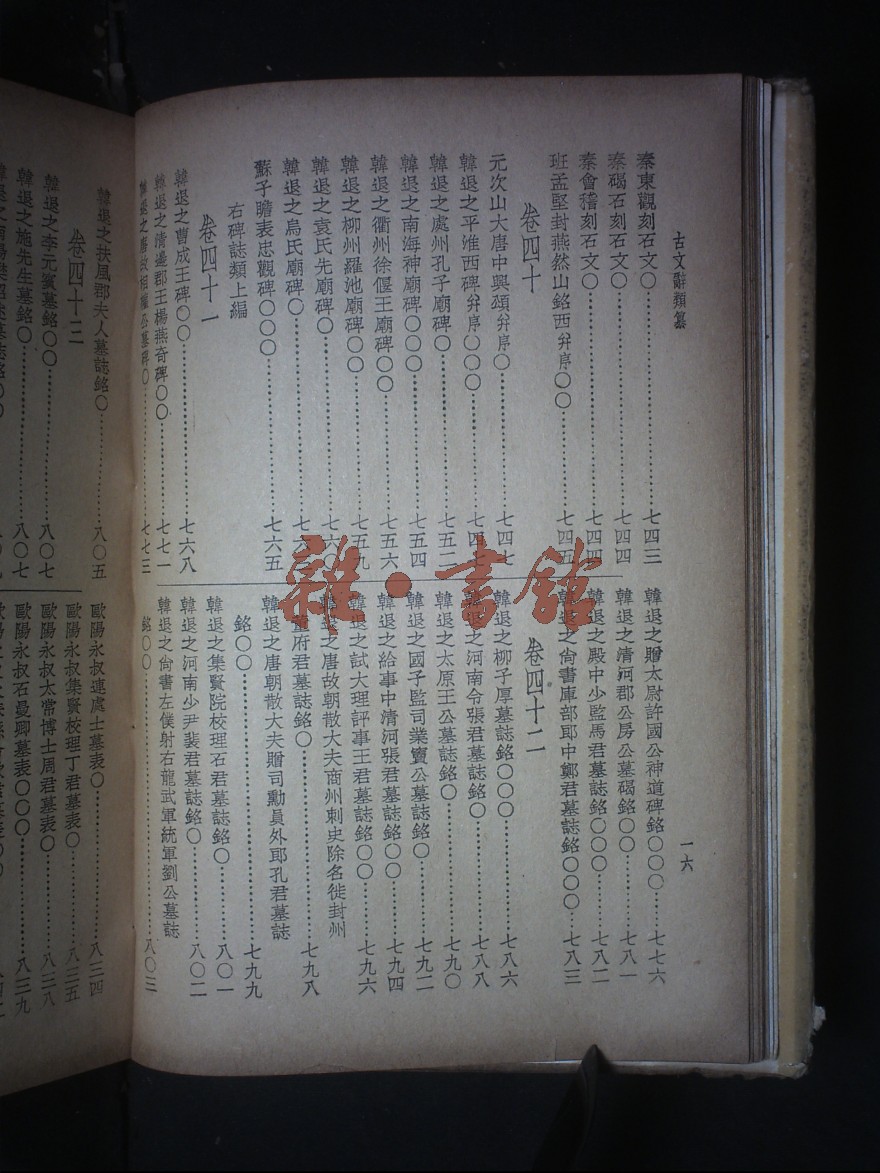 古文辭類纂
一六
秦東觀刻石文〇……七四三
秦碣石刻石文〇……七四四
秦會稽刻石文〇……七四四
班孟堅封燕然山銘西并序〇〇……七四五
卷四十
元次山大唐中興頌并序〇……七四七
韓退之平淮西碑并序〇〇〇……七四七
韓退之處州孔子廟碑〇……七五二
韓退之南海神廟碑〇〇〇……七五四
韓退之衢州徐偃王廟碑〇〇……七五六
韓退之柳州羅池廟碑〇〇……七五九
韓退之袁氏先廟碑〇……七六〇
韓退之烏氏廟碑〇……七六
蘇子瞻表忠觀碑〇〇〇……七六五
右碑誌類上編
卷四十一
韓退之曹成王碑〇〇……七六八
韓退之清邊郡王楊燕奇碑〇〇……七七一
韓退之唐故相權公墓碑〇……七七三
韓退之贈太尉許國公神道碑銘〇〇〇……七七六
韓退之清河郡公房公墓碣銘〇〇……七八一
韓退之殿中少監馬君墓誌銘〇〇〇……七八二
韓退之尙書庫部郎中鄭君墓誌銘〇〇〇……七八三
卷四十二
韓退之柳子厚墓誌銘〇〇〇……七八六
韓退之河南令張君墓誌銘〇……七八八
韓退之太原王公墓誌銘〇……七九〇
韓退之國子監司業竇公墓誌銘〇……七九二
韓退之給事中清河張君墓誌銘〇〇……七九四
韓退之試大理評事王君墓誌銘〇〇……七九六
韓退之唐故朝散大夫商州刺史除名徙封州
董府君墓誌銘〇……七九八
韓退之唐朝散大夫贈司勳員外郎孔君墓誌
銘〇〇……七九九
韓退之集賢院校理石君墓誌銘〇……八〇一
韓退之河南少尹裴君墓誌銘〇……八〇二
韓退之尙書左僕射右龍武軍統軍劉公墓誌
銘〇〇……八〇三
韓退之扶風郡夫人墓誌銘〇……八〇五
卷四十三
韓退之李元賓墓銘〇〇……八〇七
韓退之施先生墓銘〇……八〇七
歐陽永叔連處士墓表〇……八三四
歐陽永叔集賢校理丁君墓表〇……八三五
歐陽永叔太常博士周君墓表〇……八三八
歐陽永叔石曼卿墓表〇〇〇……八三九
雜·書館